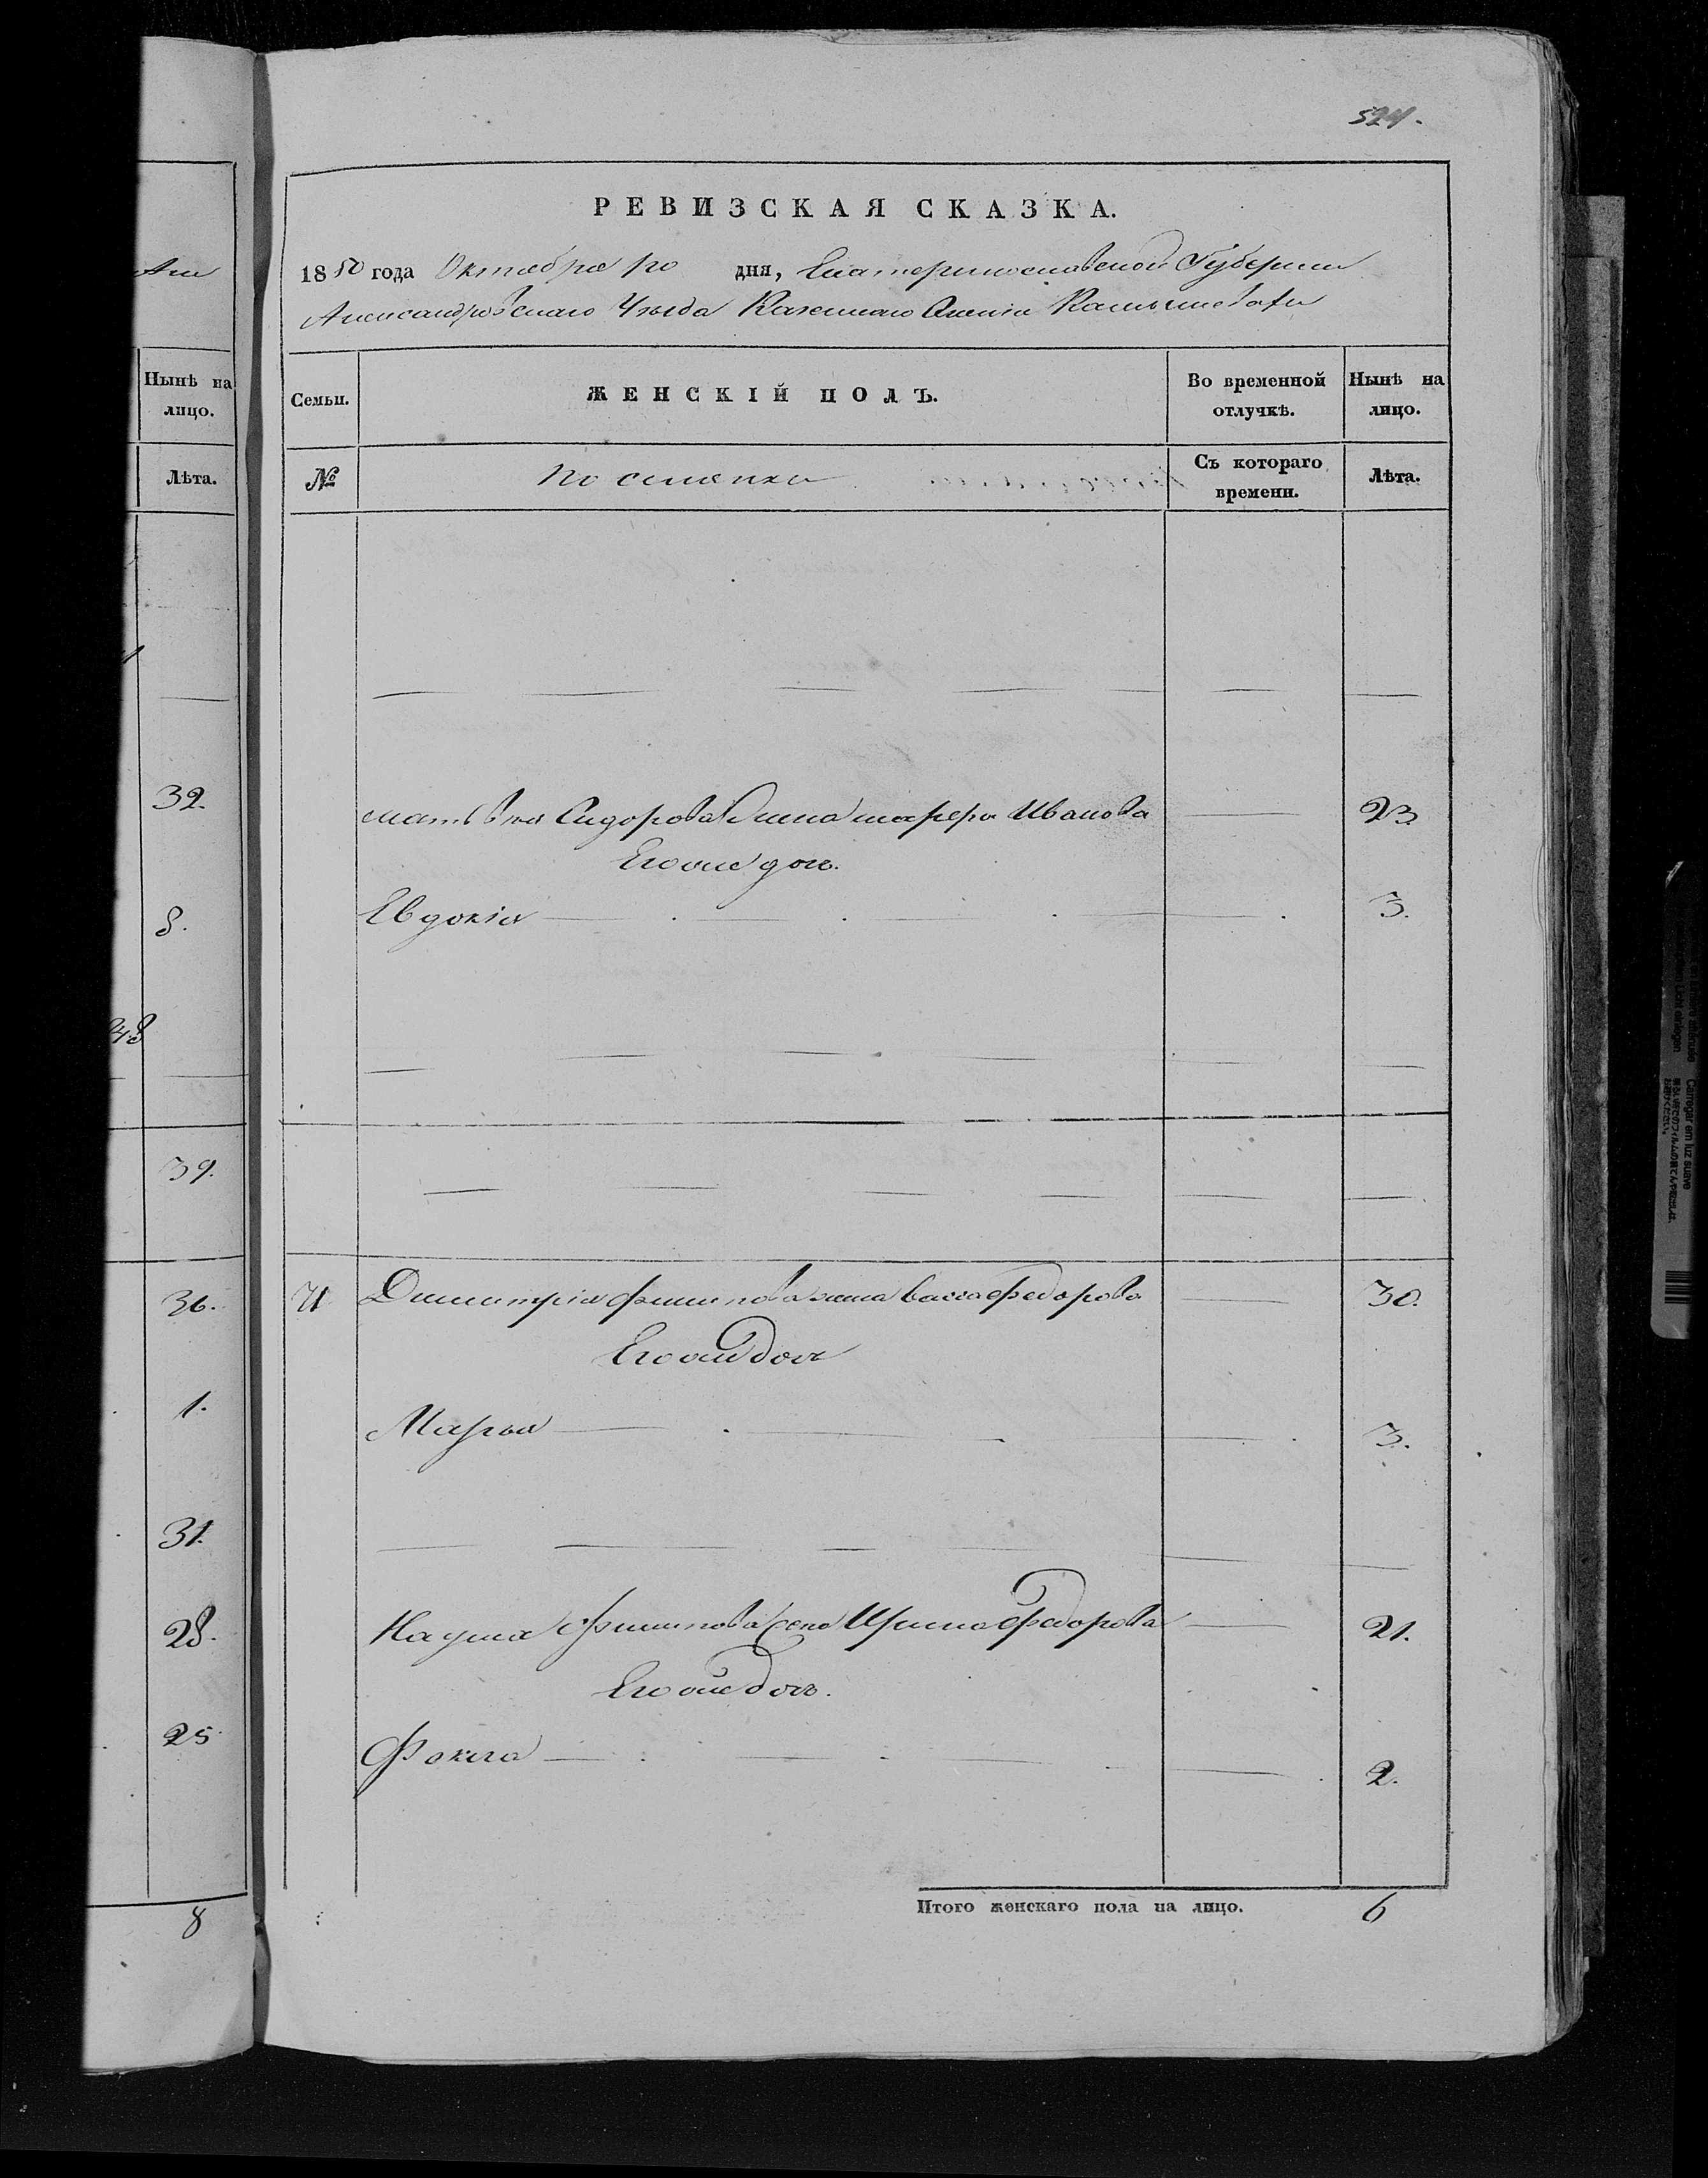 524.
РЕВИЗСКАЯ СКАЗКА.
1850 года Октября 20 дня, Екатеринославской Губернии
Александровскаго Уезда Казеннаго Селенія
Нынѣ на лицо.
Лѣта.
32.
8.
39.
36.
1.
31.
28.
25
8
Семьи. ЖЕНСКІЙ ПОЛЪ. Во временной отлучкѣ. Нынѣ на лицо.
№ Съ котораго времени. Лѣта.
Матвѣя Сидорова жена Ивановa 23
Его же доч.
Евдокія 3.
Димитрія Филипова жена Васса Федорова 30.
Его же доч
Марья 3.
Наума Филипова жена Ирина Федорова 21.
Его же доч.
Фекла 2.
Итого женскаго пола на лицо. 6